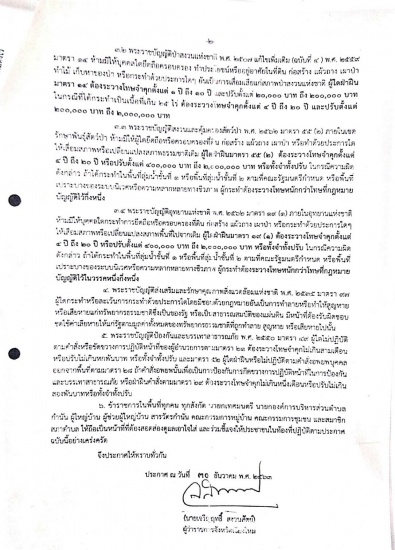 -๒-
๓.๒ พระราชบัญญัติป่าสงวนแห่งชาติ พ.ศ. ๒๕๐๗ แก้ไขเพิ่มเติม (ฉบับที่ ๔) พ.ศ. ๒๕๕๙
มาตรา ๑๔ ห้ามมิให้บุคคลใดยึดถือครอบครอง ทำประโยชน์หรืออยู่อาศัยในที่ดิน ก่อสร้าง แผ้วถาง เผาป่า
ทำไม้ เก็บหาของป่า หรือกระทำด้วยประการใดๆ อันเป็นการเสื่อมเสียแก่สภาพป่าสงวนแห่งชาติ ผู้ใดฝ่าฝืน
มาตรา ๑๔ ต้องระวางโทษจำคุกตั้งแต่ ๑ ปี ถึง ๑๐ ปี และปรับตั้งแต่ ๒๐,๐๐๐ บาท ถึง ๒๐๐,๐๐๐ บาท
ในกรณีที่ได้กระทำเป็นเนื้อที่เกิน ๒๕ ไร่ ต้องระวางโทษจำคุกตั้งแต่ ๔ ปี ถึง ๒๐ ปี และปรับตั้งแต่
๒๐๐,๐๐๐ บาท ถึง ๒,๐๐๐,๐๐๐ บาท
๓.๓ พระราชบัญญัติสงวนและคุ้มครองสัตว์ป่า พ.ศ. ๒๕๖๒ มาตรา ๕๕ (๒) ภายในเขต
รักษาพันธุ์สัตว์ป่า ห้ามมิให้ผู้ใดยึดถือหรือครอบครองที่ดิน ก่อสร้าง แผ้วถาง เผาป่า หรือทำด้วยประการใด
ให้เสื่อมสภาพหรือเปลี่ยนแปลงสภาพธรรมชาติเดิม ผู้ใดฝ่าฝืนมาตรา ๕๕ (๒) ต้องระวางโทษจำคุกตั้งแต่
๔ ปี ถึง ๒๐ ปี หรือปรับตั้งแต่ ๔๐๐,๐๐๐ บาท ถึง ๒,๐๐๐,๐๐๐ บาท หรือทั้งจำทั้งปรับ ในกรณีความผิด
ดังกล่าว ถ้าได้กระทำในพื้นที่ลุ่มน้ำชั้นที่ ๑ หรือพื้นที่ลุ่มน้ำชั้นที่ ๒ ตามที่คณะรัฐมนตรีกำหนด หรือพื้นที่
เปราะบางของระบบนิเวศหรือความหลากหลายทางชีวภาพ ผู้กระทำต้องระวางโทษหนักกว่าโทษที่กฎหมาย
บัญญัติไว้กึ่งหนึ่ง
๓.๔ พระราชบัญญัติอุทยานแห่งชาติ พ.ศ. ๒๕๖๒ มาตรา ๑๙ (๑) ภายในอุทยานแห่งชาติ
ห้ามมิให้บุคคลใดกระทำการยึดถือหรือครอบครองที่ดิน ก่อสร้าง แผ้วถาง เผาป่า หรือกระทำด้วยประการใดๆ
ให้เสื่อมสภาพหรือเปลี่ยนแปลงสภาพพื้นที่ไปจากเดิม ผู้ใดฝ่าฝืนมาตรา ๑๙ (๑) ต้องระวางโทษจำคุกตั้งแต่
๔ ปี ถึง ๒๐ ปี หรือปรับตั้งแต่ ๔๐๐,๐๐๐ บาท ถึง ๒,๐๐๐,๐๐๐ บาท หรือทั้งจำทั้งปรับ ในกรณีความผิด
ดังกล่าว ถ้าได้กระทำในพื้นที่ลุ่มน้ำชั้นที่ ๑ หรือพื้นที่ลุ่มน้ำชั้นที่ ๒ ตามที่คณะรัฐมนตรีกำหนด หรือพื้นที่
เปราะบางของระบบนิเวศหรือความหลากหลายทางชีวภาพ ผู้กระทำต้องระวางโทษหนักกว่าโทษที่กฎหมาย
บัญญัติไว้ในวรรคหนึ่งกึ่งหนึ่ง
๔. พระราชบัญญัติส่งเสริมและรักษาคุณภาพสิ่งแวดล้อมแห่งชาติ พ.ศ. ๒๕๓๕ มาตรา ๙๗
ผู้ใดกระทำหรือละเว้นการกระทำด้วยประการใดโดยมิชอบด้วยกฎหมายอันเป็นการทำลายหรือทำให้สูญหาย
หรือเสียหายแก่ทรัพยากรธรรมชาติซึ่งเป็นของรัฐ หรือเป็นสาธารณสมบัติของแผ่นดิน มีหน้าที่ต้องรับผิดชอบ
ชดใช้ค่าเสียหายให้แก่รัฐตามมูลค่าทั้งหมดของทรัพยากรธรรมชาติที่ถูกทำลาย สูญหาย หรือเสียหายไปนั้น
๕. พระราชบัญญัติป้องกันและบรรเทาสาธารณภัย พ.ศ. ๒๕๕๐ มาตรา ๔๙ ผู้ใดไม่ปฏิบัติ
ตามคำสั่งหรือขัดขวางการปฏิบัติหน้าที่ของผู้อำนวยการตามมาตรา ๒๑ ต้องระวางโทษจำคุกไม่เกินสามเดือน
หรือปรับไม่เกินหกพันบาท หรือทั้งจำทั้งปรับ และมาตรา ๕๒ ผู้ใดฝ่าฝืนหรือไม่ปฏิบัติตามคำสั่งอพยพบุคคล
ออกจากพื้นที่ตามมาตรา ๒๘ ถ้าคำสั่งอพยพนั้นเพื่อเป็นการป้องกันการกีดขวางการปฏิบัติหน้าที่ในการป้องกัน
และบรรเทาสาธารณภัย หรือฝ่าฝืนคำสั่งตามมาตรา ๒๙ ต้องระวางโทษจำคุกไม่เกินหนึ่งเดือนหรือปรับไม่เกิน
สองพันบาทหรือทั้งจำทั้งปรับ
๖. ข้าราชการในพื้นที่ทุกคน ทุกสังกัด นายกเทศมนตรี นายกองค์การบริหารส่วนตำบล
กำนัน ผู้ใหญ่บ้าน ผู้ช่วยผู้ใหญ่บ้าน สารวัตรกำนัน คณะกรรมการหมู่บ้าน คณะกรรมการชุมชน และสมาชิก
สภาตำบล ให้ถือเป็นหน้าที่ที่ต้องสอดส่องดูแลเอาใจใส่ และร่วมชี้แจงให้ประชาชนในท้องที่ปฏิบัติตามประกาศ
ฉบับนี้อย่างเคร่งครัด
จึงประกาศให้ทราบทั่วกัน
ประกาศ ณ วันที่ ๓๐ ธันวาคม พ.ศ. ๒๕๖๓
(นายเจริญฤทธิ์ สงวนสัตย์)
ผู้ว่าราชการจังหวัดเชียงใหม่